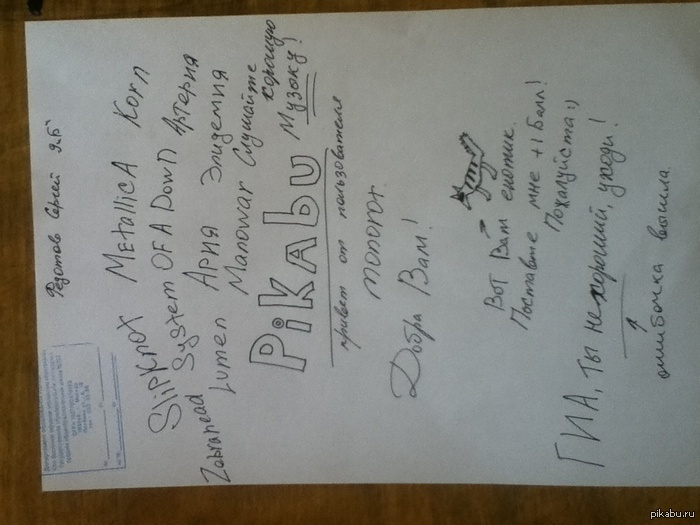 Федотов Сергей 9"Б"
Slipknot Metallica Korn
Zebrahead System OF A Down Артерия
Lumen Ария Эпидемия
Manowar Слушайте
хорошую
Pikabu Музыку!
привет от пользователя
monorox.
Добра Вам!
Вот Вам енотик.
Поставьте мне +1 Балл!
Пожалуйста:)
ГИА, ты не хороший, уходи!
ошибочка вышла.
pikabu.ru